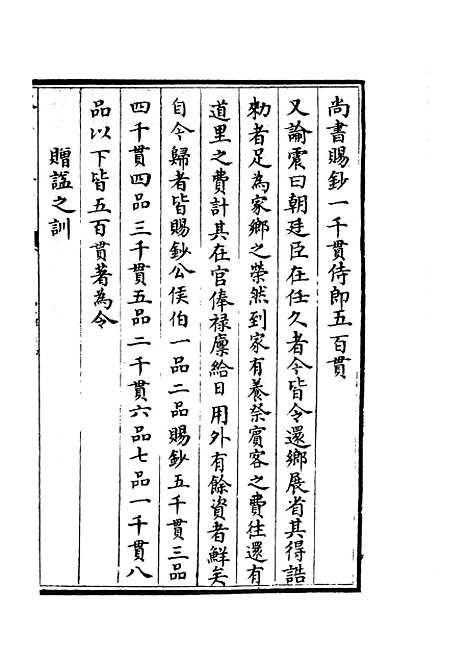 尚書賜鈔一千貫侍郎五百貫
又諭震曰朝廷臣在任久者今皆令還鄉展省其得誥
勑者足為家鄉之榮然到家有養祭賓客之費往還有
道里之費計其在官俸禄廩給日用外有餘資者鮮矣
自今歸者皆賜鈔公侯伯一品二品賜鈔五千貫三品
四千貫四品三千貫五品二千貫六品七品一千貫八
品以下皆五百貫著為令
贈諡之訓